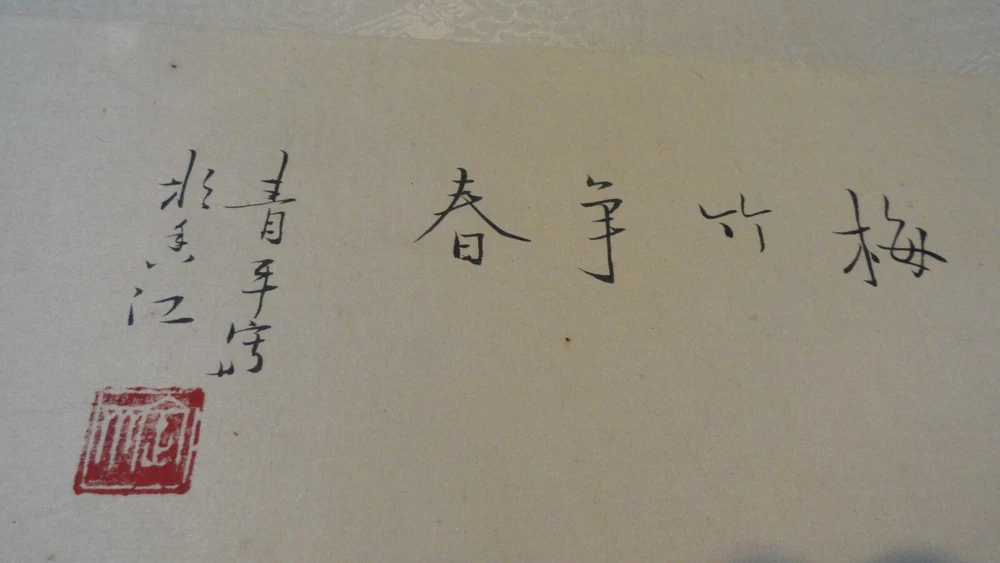 梅竹争春
青平写
于香江